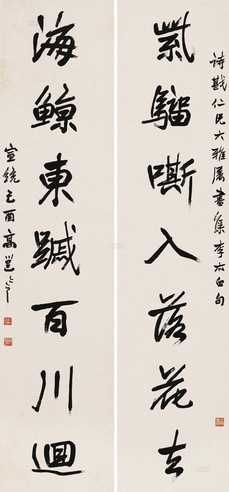 诗戡仁兄大雅属書集李太白句
紫騮嘶入落花去
海鯨東蹴百川迴
宣統己酉高邕